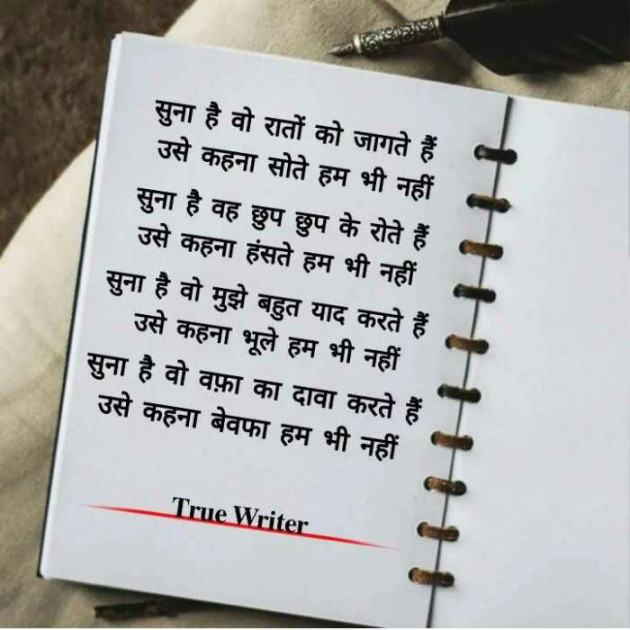 सुना है वो रातों को जागते हैं
उसे कहना सोते हम भी नहीं
सुना है वह छुप छुप के रोते हैं
उसे कहना हंसते हम भी नहीं
सुना है वो मुझे बहुत याद करते हैं
उसे कहना भूले हम भी नहीं
सुना है वो वफ़ा का दावा करते हैं
उसे कहना बेवफा हम भी नहीं
True Writer